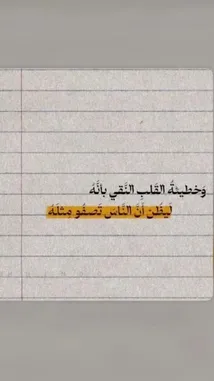 وَخطيئةُ القَلبِ النَّقي بِأنَّهُ
ليظُن أنَّ النَّاسَ تَصفُو مِثلَهُ